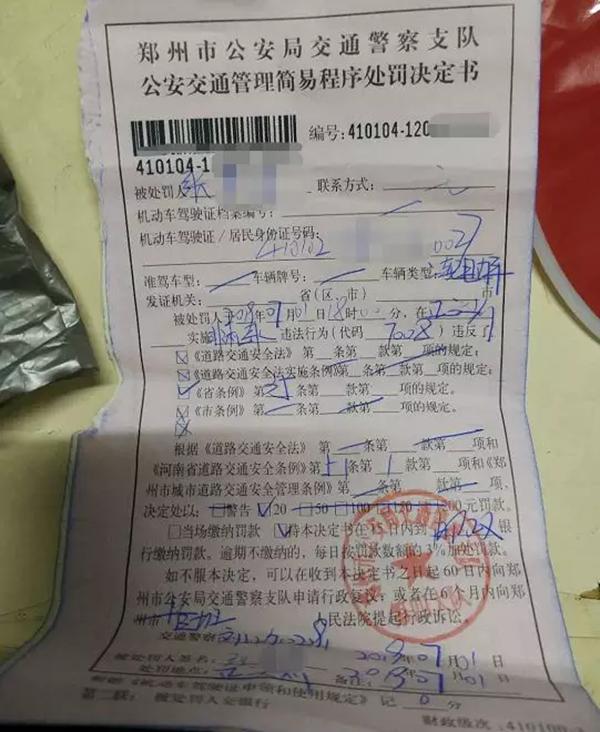 郑州市公安局交通警察支队
公安交通管理简易程序处罚决定书
编号:410104-120
410104-1
被处罚人 张 联系方式:
机动车驾驶证档案编号:
机动车驾驶证/居民身份证号码:
410102 0027
准驾车型: 车辆牌号: 车辆类型:
发证机关: 省(区、市) 市
被处罚人于 07月01日18时00分,在
实施 违法行为(代码 7008)违反了
《道路交通安全法》第 条第 款第 项的规定;
《道路交通安全法实施条例》第 条第 款第 项的规定;
《省条例》第 条第 款第 项的规定。
《市条例》第 条第 款第 项的规定。
根据《道路交通安全法》第 条第 款第 项和
《河南省道路交通安全条例》第51条第1款第 项和《郑
州市城市道路交通安全管理条例》第 条第 款第 项
决定处以:□警告 ☑20 □50 □100 □150 □200元罚款。
□当场缴纳罚款 ☑持本决定书在15日内到 银
行缴纳罚款。逾期不缴纳的,每日按罚款数额的3%加处罚款。
如不服本决定,可以在收到本决定书之日起60日内向郑
州市公安局交通警察支队申请行政复议;或者在6个月内向
郑州市 人民法院提起行政诉讼。
交通警察 2019年07月01日
被处罚人签名: 2019年07月01日
处罚地点: 备注:
根据《机动车驾驶证申领和使用规定》记0分
第二联:被处罚人交银行
财政级次:410100